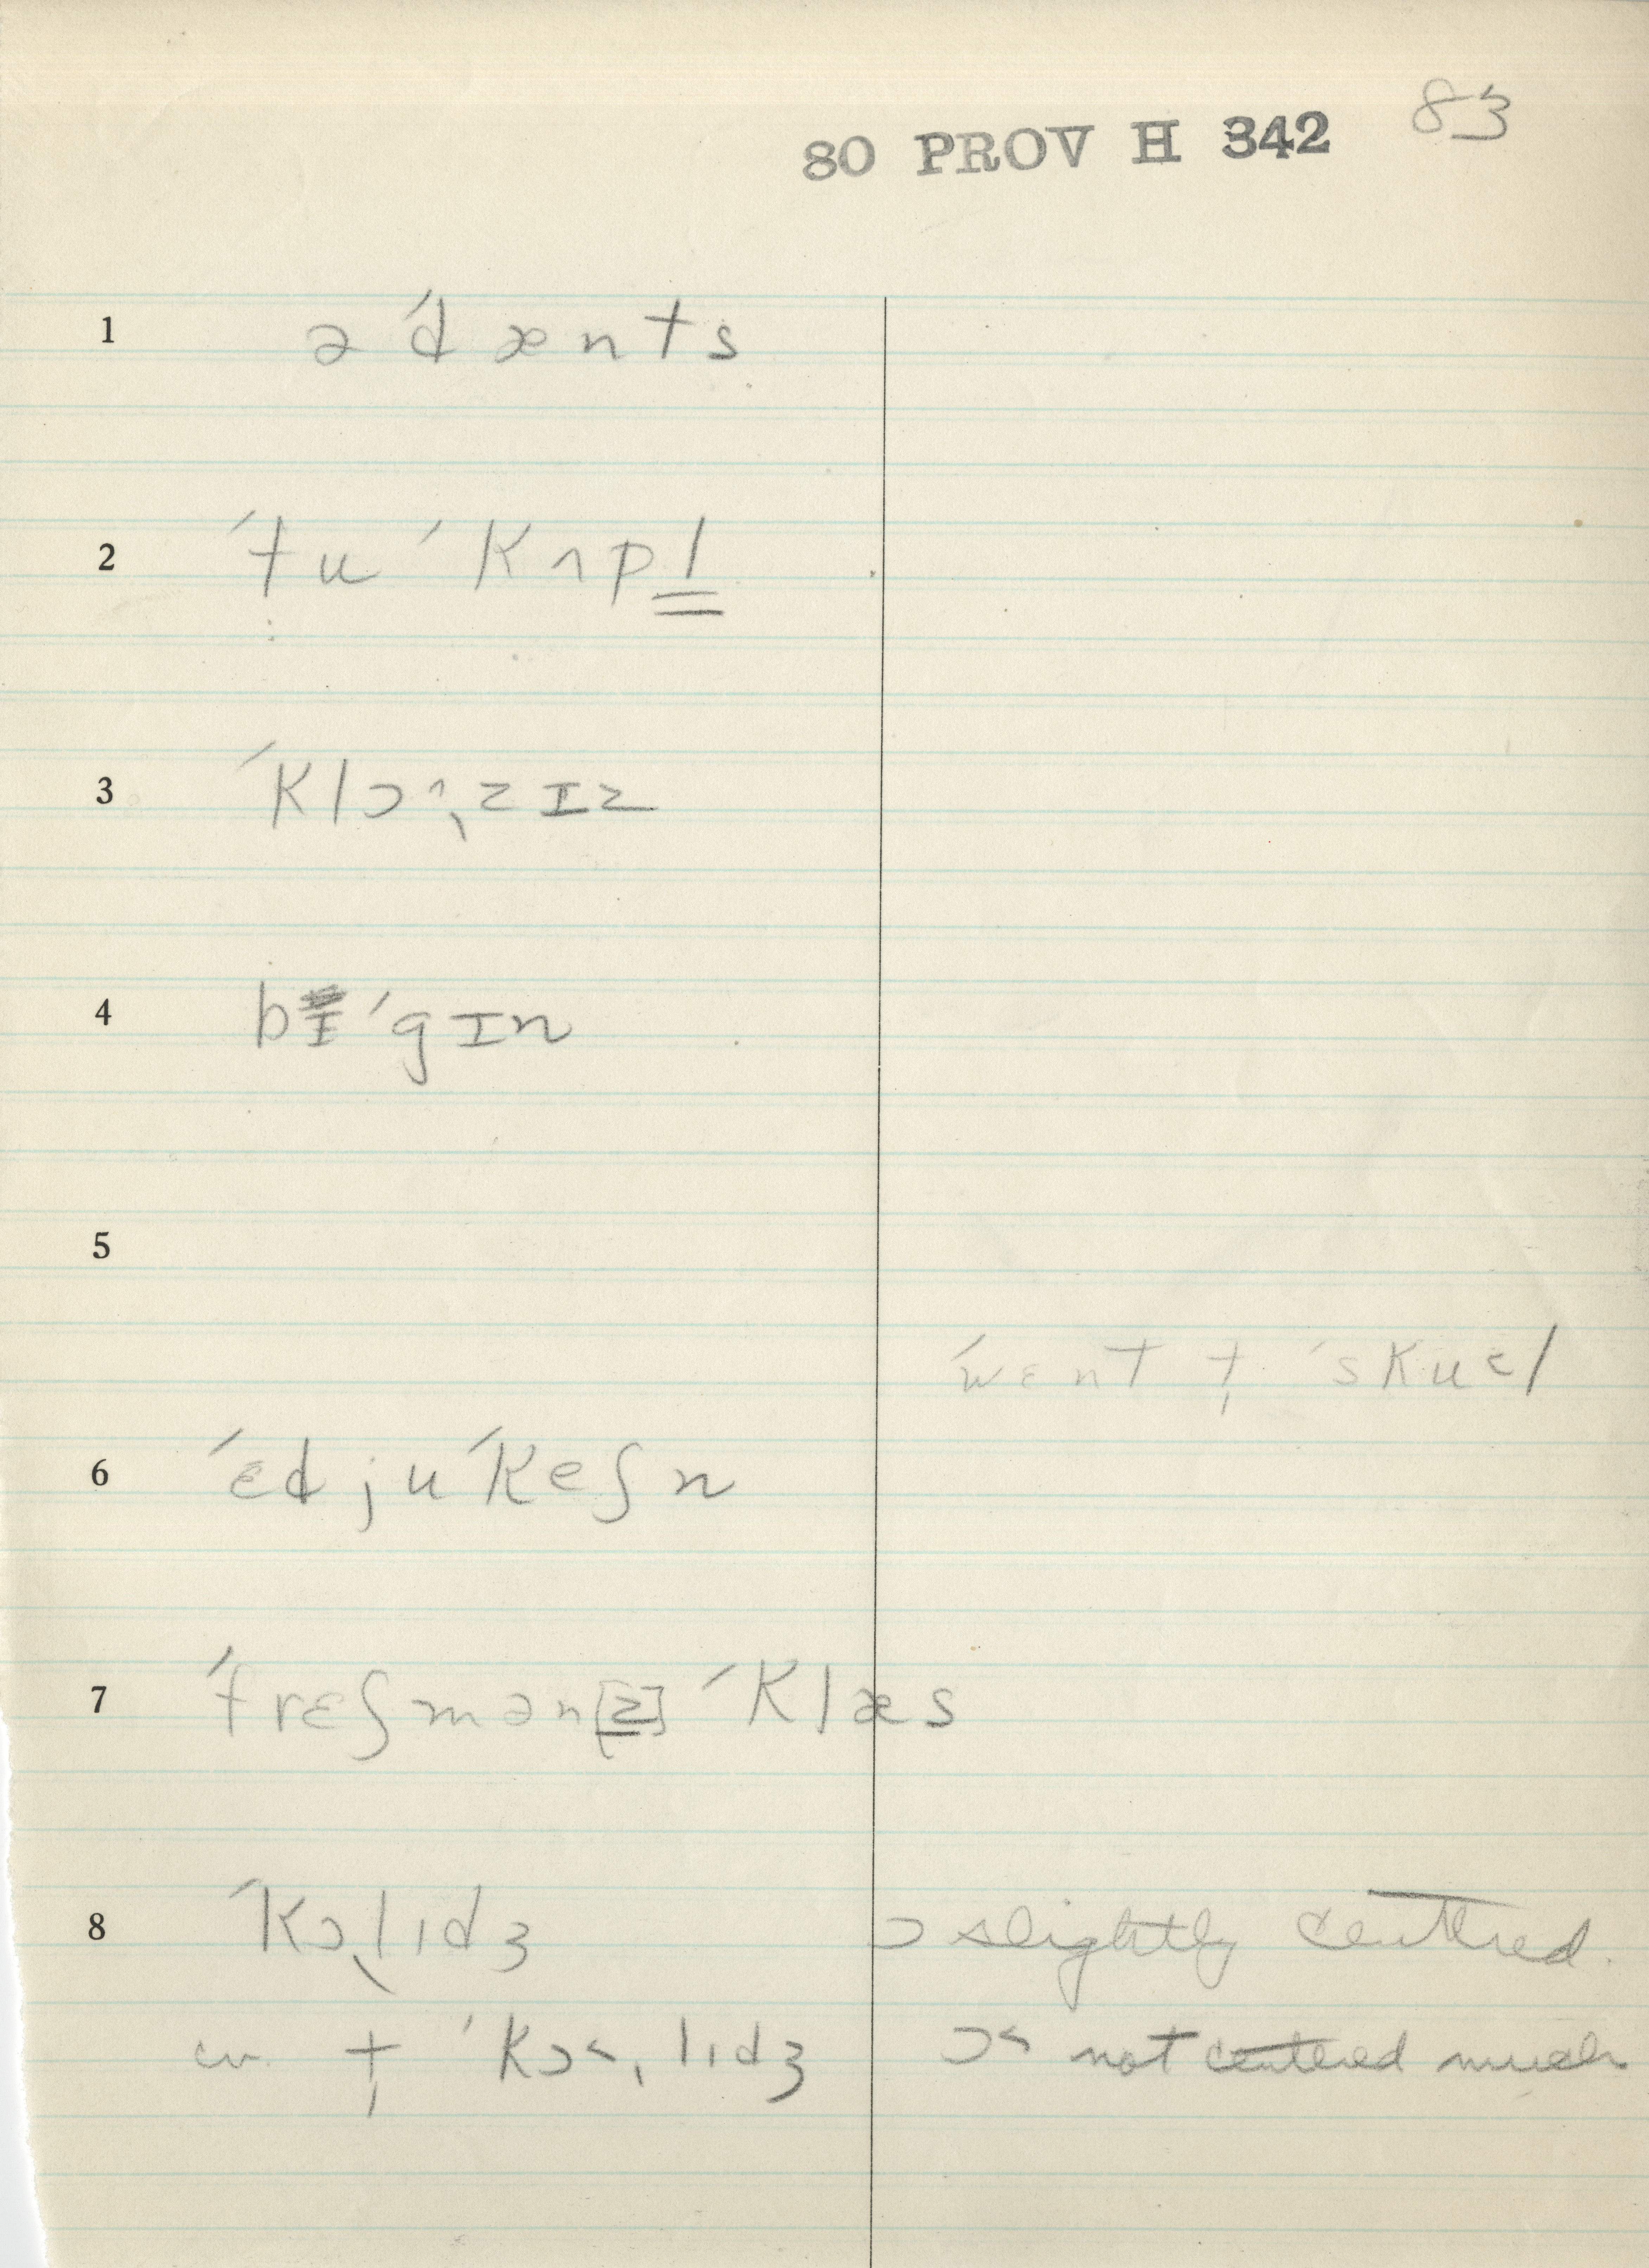 80 PROV H 342 83
1 ə ˈd æ n t s
2 ˈt̩ u ˈk ʌ p l̳
3 ˈk l ɔ ˄ ˎ z ɪ z
4 b ɪ ˈg ɪ n
5
ˈw ɛ n t t̩ ˈs k u ə l
6 ˈɛ d j u ˈk e ʃ n
7 ˈf r ɛ ʃ m ə n [z] ˈk l æ s
8 ˈk ɔ ˎ l ɪ d ʒ ɔ slightly centred.
t̩ ˈk ɔ ˂ ˌ l ɪ d ʒ ɔ˂ not centered much